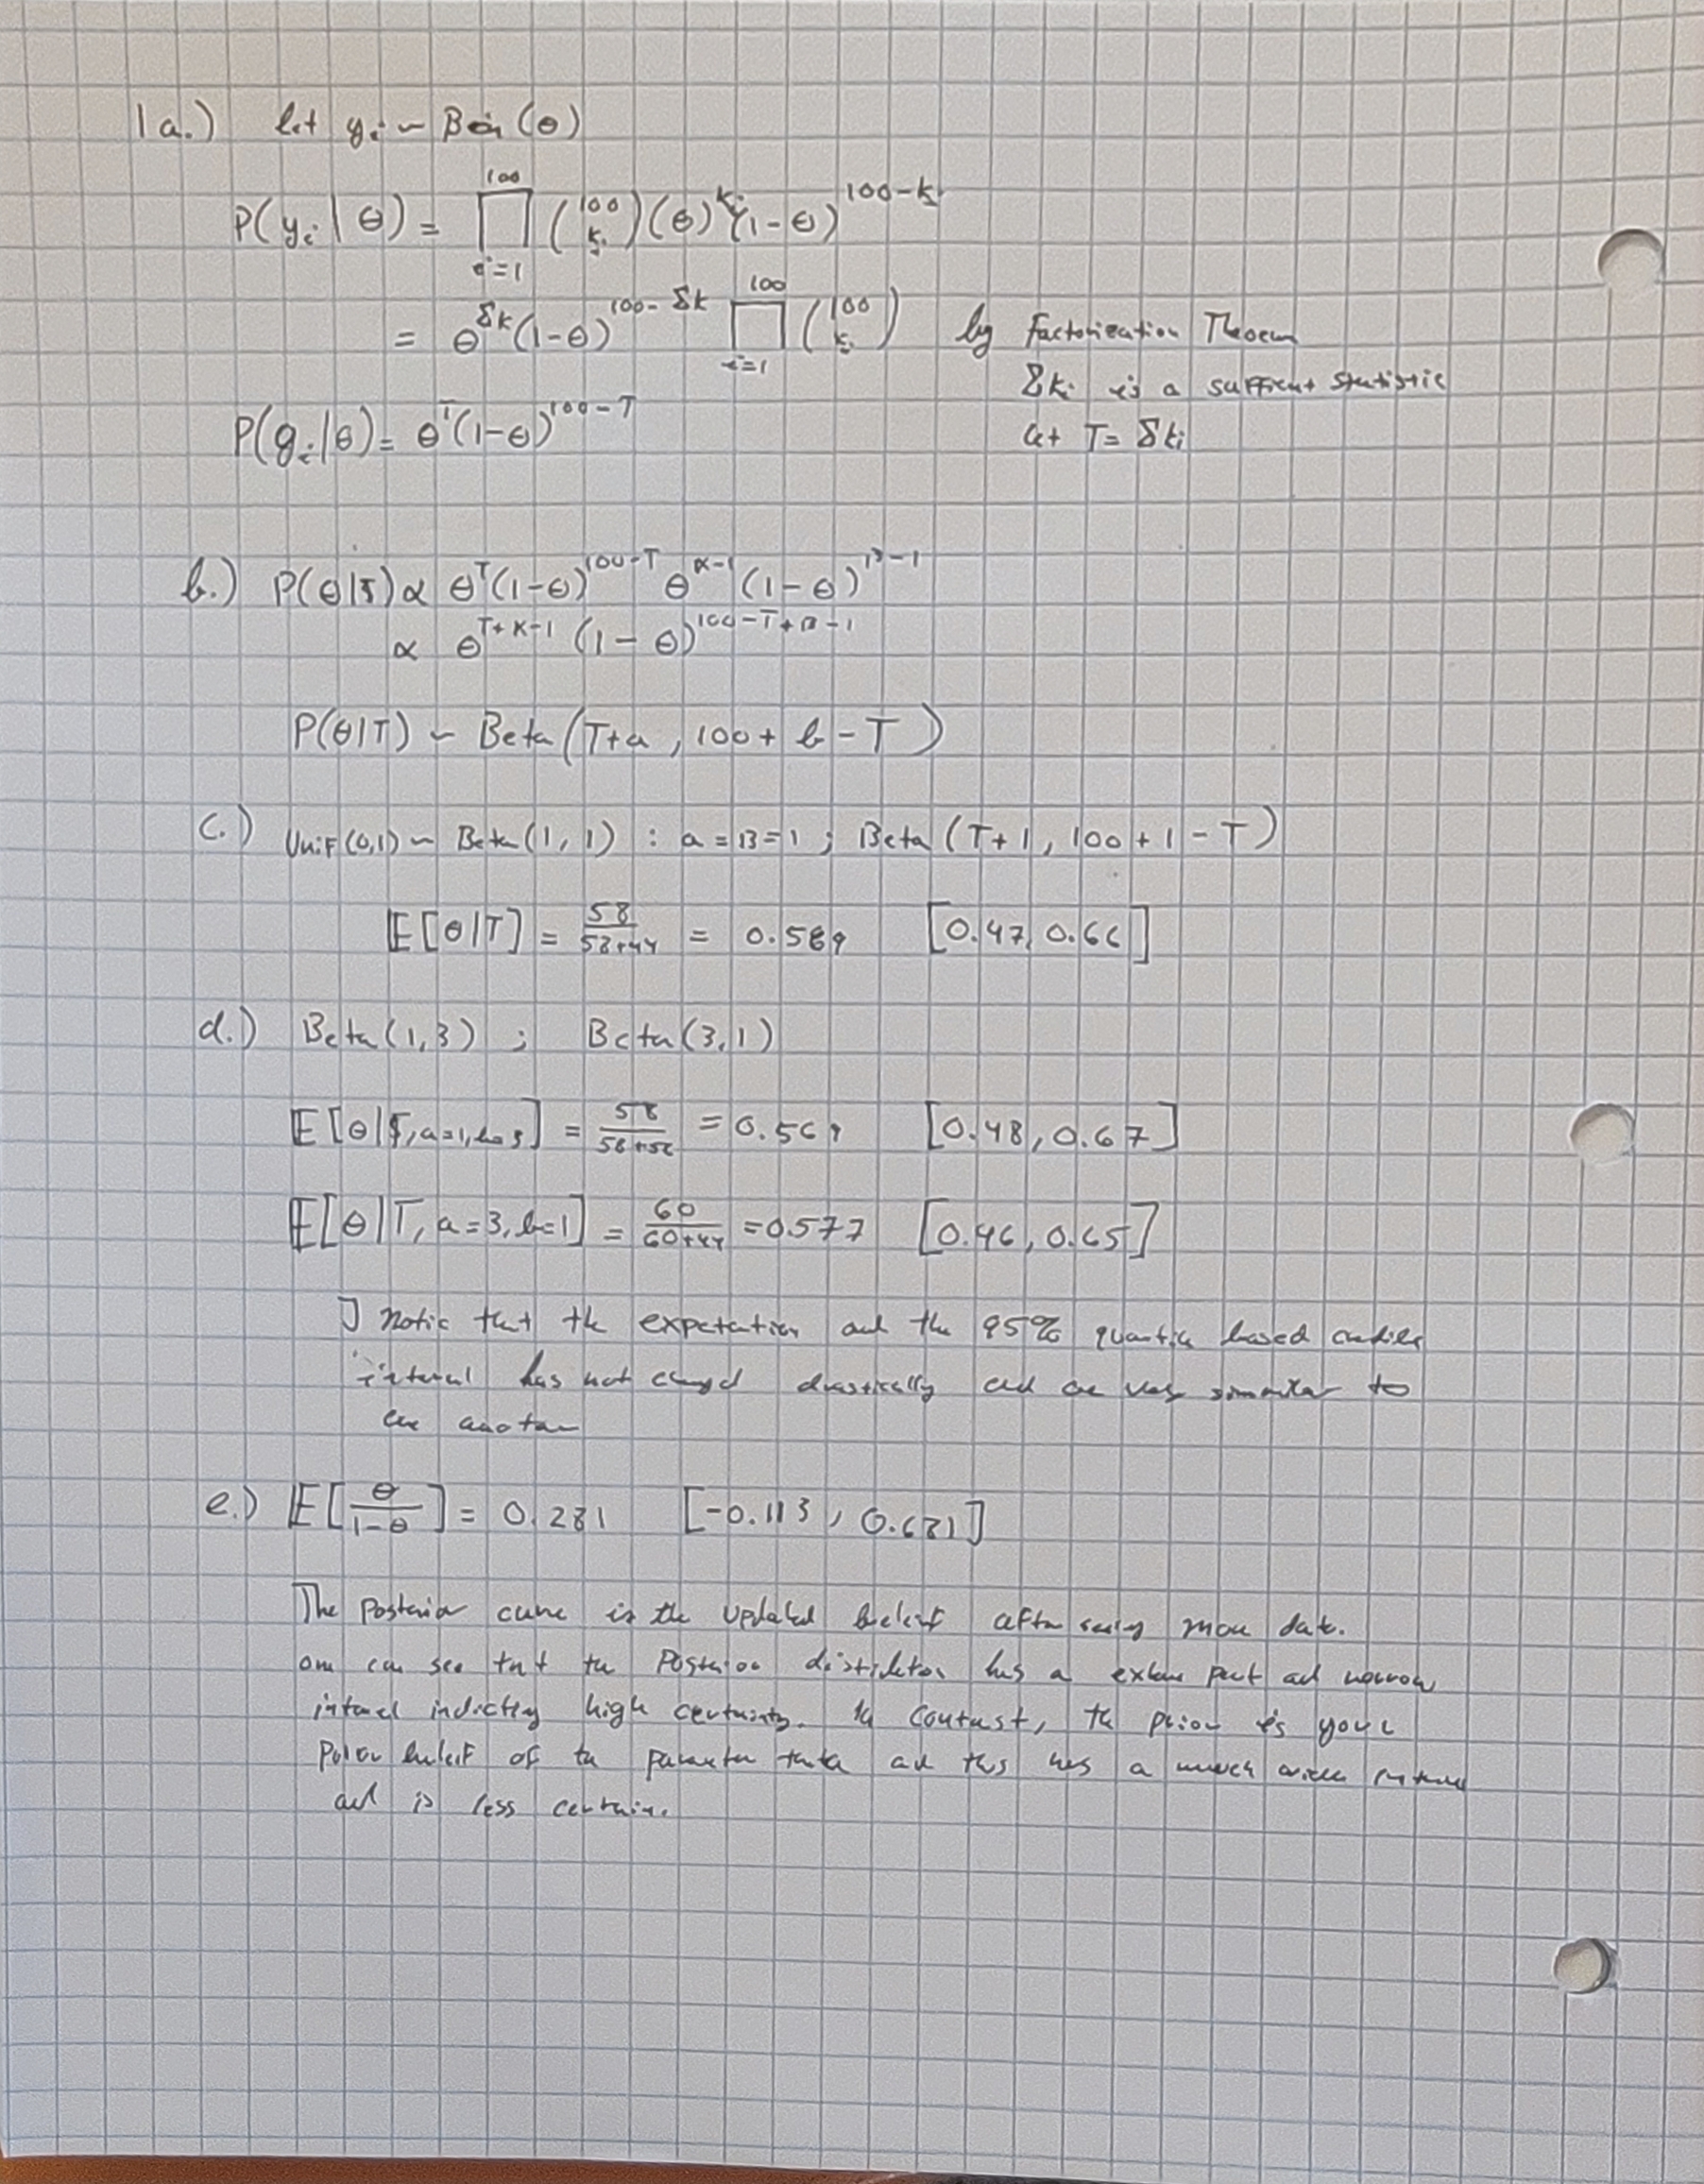 1a.) let yᵢ ~ Bin(θ)
P(yᵢ | θ) = ∏_{i=1}^{100} (100 kᵢ)(θ)^{kᵢ}(1-θ)^{100-kᵢ}
= θ^{Σk}(1-θ)^{100-Σk} ∏_{i=1}^{100} (100 kᵢ) by Factorization Theorem
Σkᵢ is a sufficent statistic
P(yᵢ|θ) = θ^T(1-θ)^{100-T} let T = Σkᵢ
b.) P(θ|T) ∝ θ^T(1-θ)^{100-T} θ^{α-1}(1-θ)^{β-1}
∝ θ^{T+α-1} (1-θ)^{100-T+β-1}
P(θ|T) ~ Beta(T+a, 100+b-T)
c.) Unif(0,1) ~ Beta(1,1) : a=β=1 ; Beta(T+1, 100+1-T)
E[θ|T] = 58/(58+44) = 0.569 [0.47, 0.66]
d.) Beta(1,3) ; Beta(3,1)
E[θ|T, a=1, b=3] = 58/ = 0.56 [0.48, 0.67]
E[θ|T, a=3, b=1] = 60/(60+44) = 0.577 [0.46, 0.65]
I notic that the expectation and the 95% quantile based credible
interval has not changed drastically and are very similar to
one another
e.) E[θ/(1-θ)] = 0.281 [-0.113, 0.681]
The posterior curve is the updated beleif after seeing more data.
one can see that the posterior distribution has a peak and narrow
interval indicating high certainty. In contrast, the prior is your
beleif of the parameter theta and this has a much wider
and is less certain.